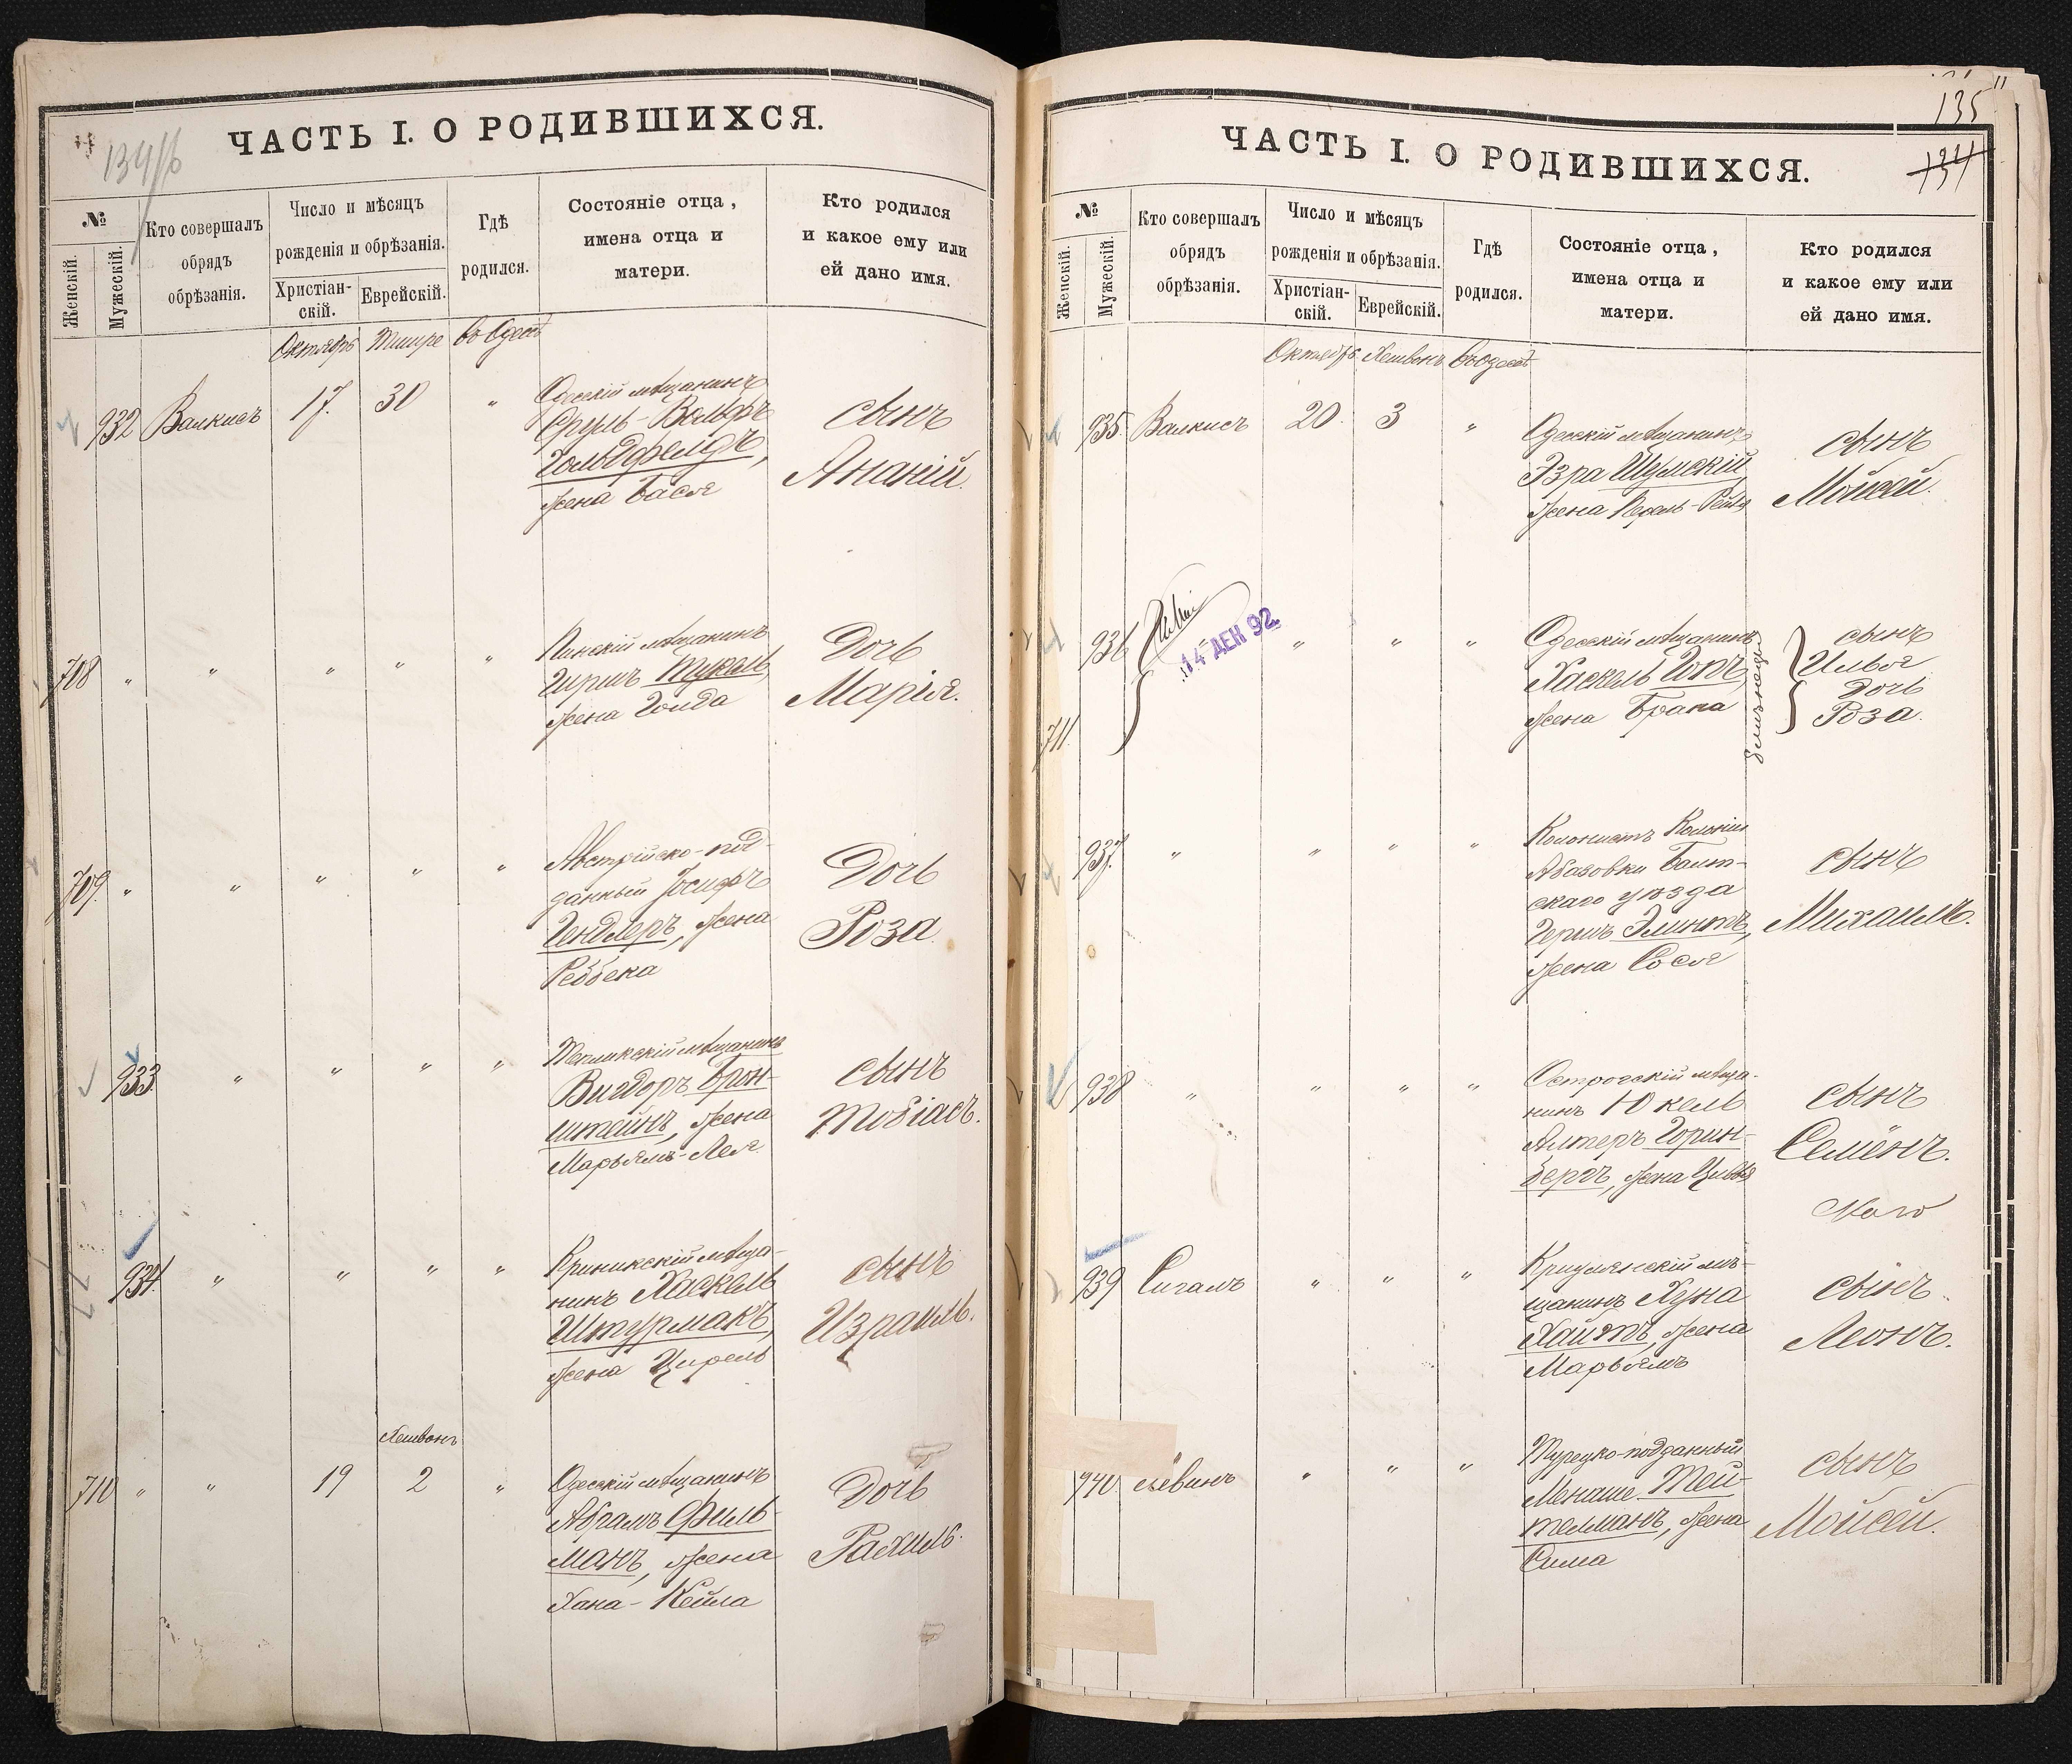 134/б
ЧАСТЬ I. О РОДИВШИХСЯ.
№
Женскій.
Мужескій.
Кто совершалъ
обрядъ
обрѣзанія.
Число и мѣсяцъ
рожденія и обрѣзанія.
Христіан-
скій.
Еврейскій.
Гдѣ
родился.
Состояніе отца,
имена отца и
матери.
Кто родился
и какое ему или
ей дано имя.
Октябрь Тишре въ Одессѣ
932 Валкисъ 17. 30 "
Одесскій мѣщанинъ
Сруль-Вольфъ
Гольдфельдъ,
жена Бася
сынъ
Ананій.
708 " " " " "
Пинскій мѣщанинъ
Гиршъ Тукель,
жена Голда
Дочь
Марія.
709. " " " " "
Австрійско-под-
данный Іосифъ
Гендлеръ, жена
Реббека
Дочь
Роза.
933. " " " "
Тепликскій мѣщанинъ
Вигдоръ Брон-
штейнъ, жена
Марьямъ-Лея.
сынъ
Тобіасъ.
934. " " " "
Криникскій мѣща-
нинъ Хаскель
Штурмакъ,
жена Цирель
сынъ
Израиль.
Хешвонъ
710 " " 19 2 "
Одесскій мѣщанинъ
Абрамъ Филь-
манъ, жена
Хана-Кейла
Дочь
Рахиль.
135
134
ЧАСТЬ I. О РОДИВШИХСЯ.
№
Женскій.
Мужескій.
Кто совершалъ
обрядъ
обрѣзанія.
Число и мѣсяцъ
рожденія и обрѣзанія.
Христіан-
скій.
Еврейскій.
Гдѣ
родился.
Состояніе отца,
имена отца и
матери.
Кто родился
и какое ему или
ей дано имя.
Октябрь Хешвонъ въ Одессѣ
935. Валкисъ 20. 3 "
Одесскій мѣщанинъ
Эзра Шумскій,
жена Перель-Рейзя
сынъ
Мойсей.
936 " " "
14 ДЕК 92
711.
Одесскій мѣщанинъ
Хаскель Горъ,
жена Брана
близнецы
сынъ
Илья
Дочь
Роза.
937. " " " "
Колонистъ Колоніи
Абазовки Балт-
скаго уѣзда
Гершъ Элинтъ,
жена Сося
сынъ
Михаилъ.
938 " " " "
Острогскій мѣща-
нинъ Юкель
Алтеръ Горин-
бергъ, жена Цивья
сынъ
Семёнъ.
939 Сигалъ " " "
Криулянскій мѣ-
щанинъ Хуна
Хаитъ, жена
Марьямъ
сынъ
Леонъ.
940. Левинъ " " "
Турецко-подданный
Менаше Тей-
телманъ, жена
Сима
сынъ
Мойсей.